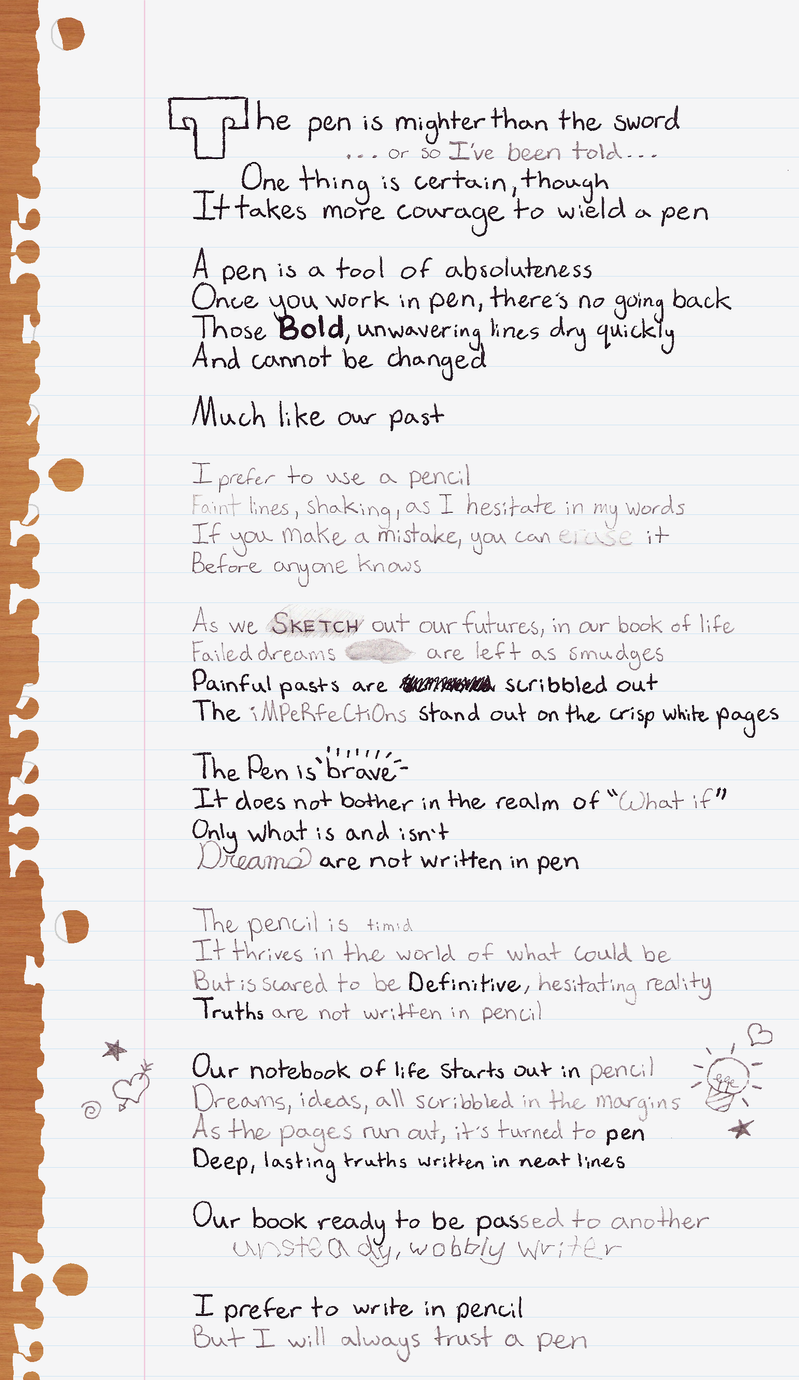 The pen is mighter than the sword
... or so I've been told...
One thing is certain, though
It takes more courage to wield a pen
A pen is a tool of absoluteness
Once you work in pen, there's no going back
Those Bold, unwavering lines dry quickly
And cannot be changed
Much like our past
I prefer to use a pencil
Faint lines, shaking, as I hesitate in my words
If you make a mistake, you can erase it
Before anyone knows
As we SKETCH out our futures, in our book of life
Failed dreams are left as smudges
Painful pasts are scribbled out
The iMPeRfeCtiOns stand out on the crisp white pages
The Pen is brave
It does not bother in the realm of "What if"
Only what is and isn't
Dreams are not written in pen
The pencil is timid
It thrives in the world of what could be
But is scared to be Definitive, hesitating reality
Truths are not written in pencil
Our notebook of life starts out in pencil
Dreams, ideas, all scribbled in the margins
As the pages run out, it's turned to pen
Deep, lasting truths written in neat lines
Our book ready to be passed to another
unsteady, wobbly writer
I prefer to write in pencil
But I will always trust a pen